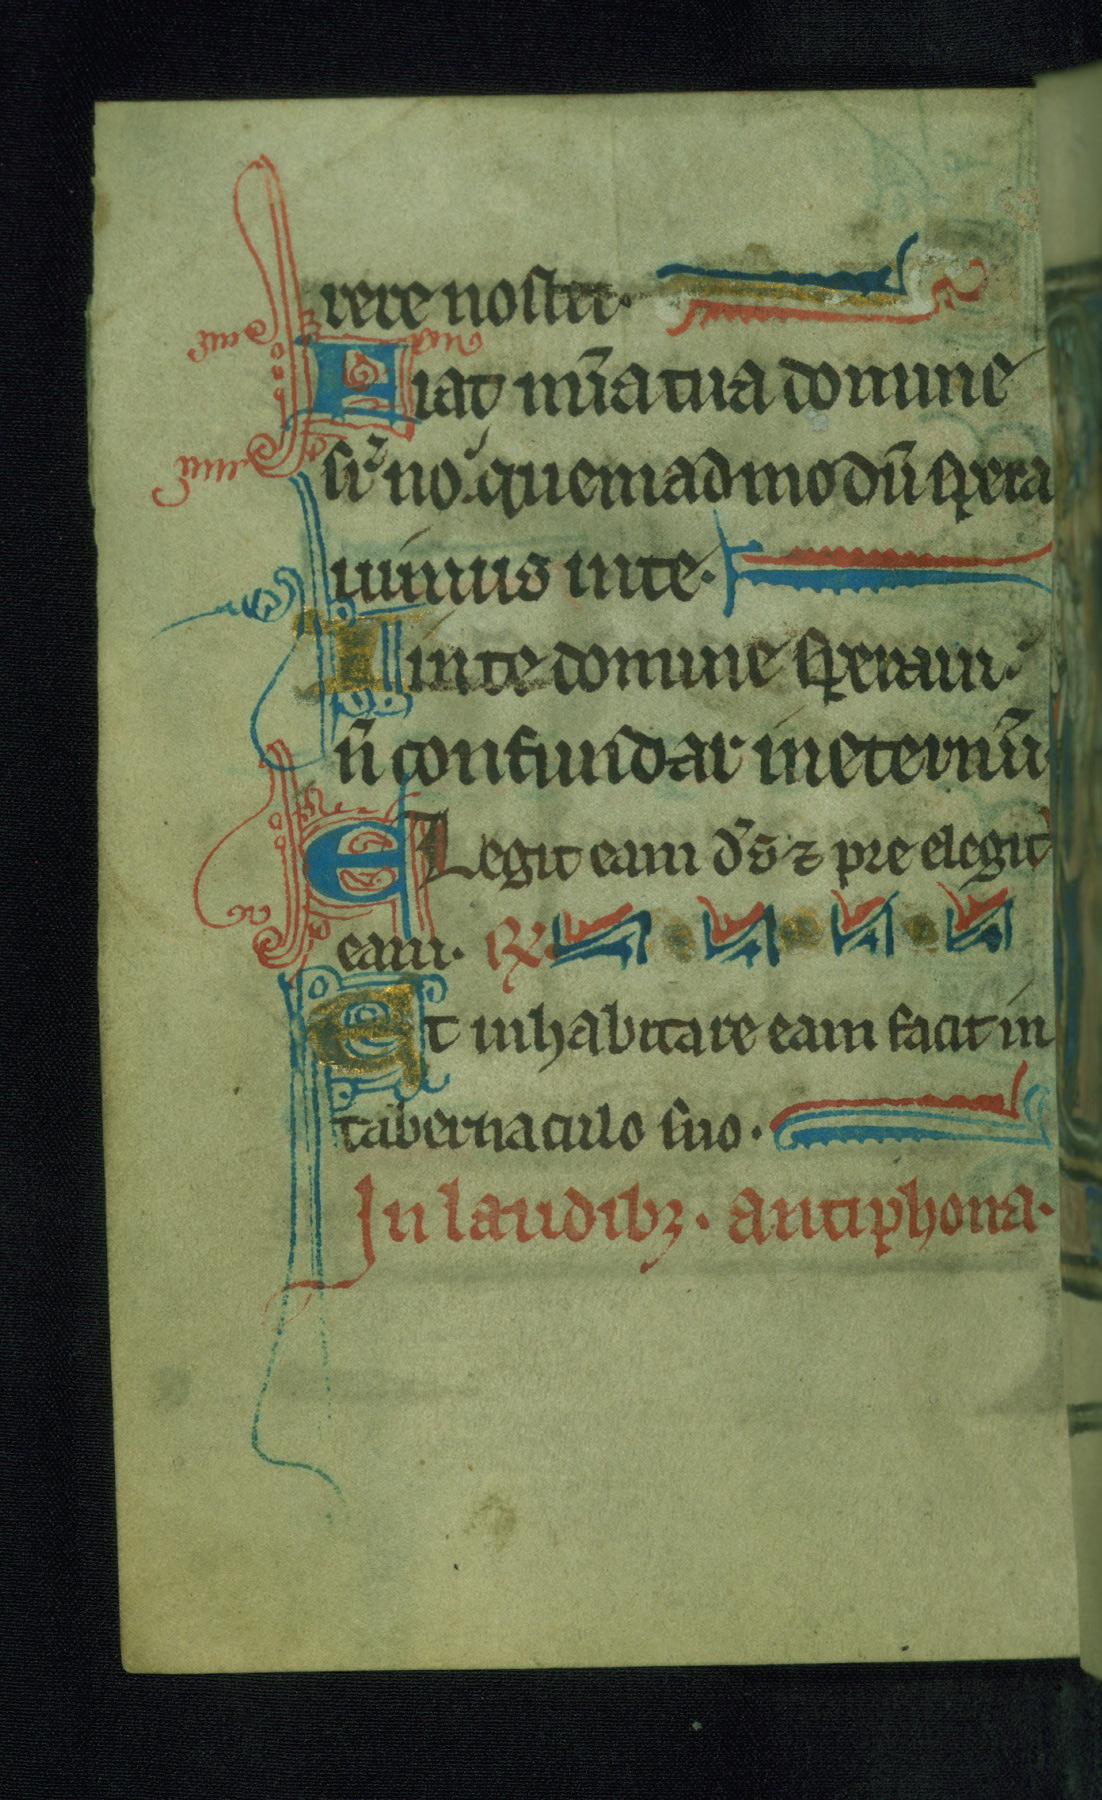 rere nostri.
Fiat mīa tua domine
sr̄ nos. quemadmodū spera
uimus in te.
In te domine speraui.
n̄ confundar in eternū.
ELegit eam d's ⁊ pre elegit
eam. ℟
Et inhabitare eam facit in
tabernaculo suo.
In laudibꝫ. antiphona.